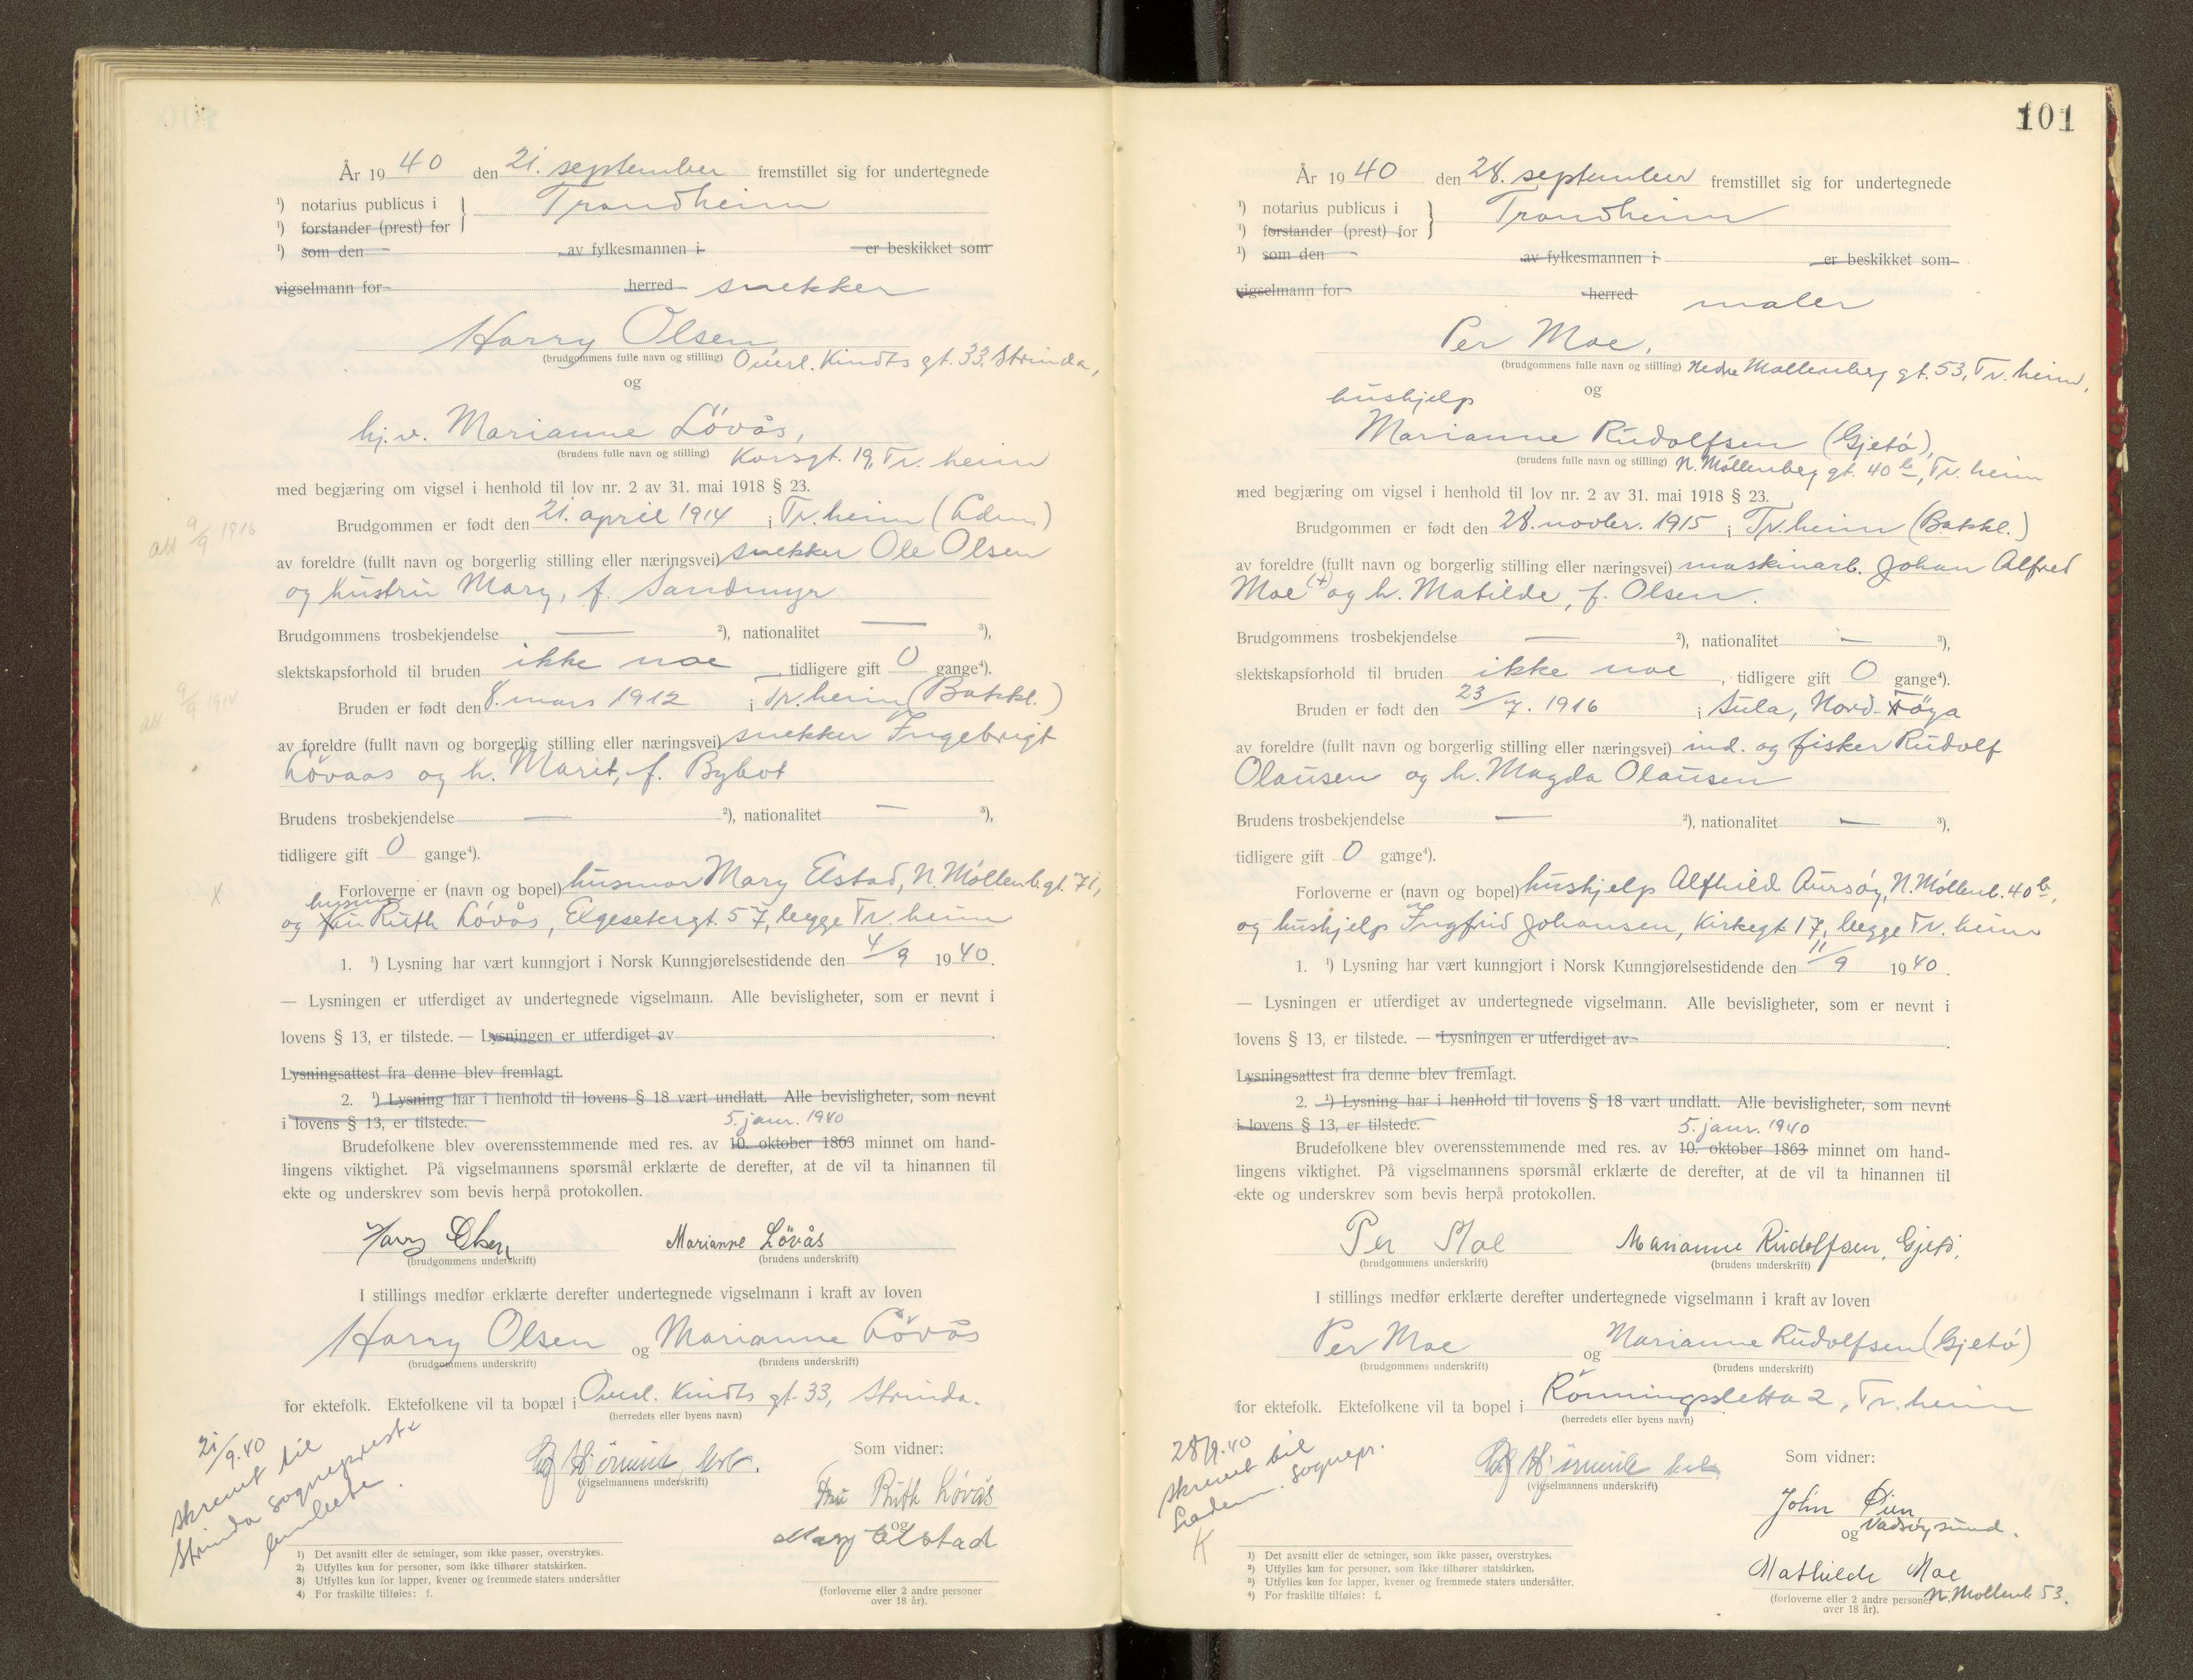 År 1940 den 21. september fremstillet sig for undertegnede
¹) notarius publicus i } Trondheim
¹) forstander (prest) for
¹) som den av fylkesmannen i er beskikket som
vigselmann for herred snekker
Harry Olsen
(brudgommens fulle navn og stilling) Oversl. Kindts gt. 33, Strinda,
og
hj.v. Marianne Lövås,
(brudens fulle navn og stilling) Korsgt. 19, Tr. heim
med begjæring om vigsel i henhold til lov nr. 2 av 31. mai 1918 § 23.
Brudgommen er født den 21. april 1914 i Tr.heim (Adm)
att 9/9 1916
av foreldre (fullt navn og borgerlig stilling eller næringsvei) snekker Ole Olsen
og hustru Mary, f. Sandmyr
Brudgommens trosbekjendelse — ²), nationalitet — ³),
slektskapsforhold til bruden ikke noe, tidligere gift 0 gange⁴).
Bruden er født den 8. mars 1912 i Tr.heim (Bakkl.)
att 9/9 1914
av foreldre (fullt navn og borgerlig stilling eller næringsvei) snekker Ingebrigt
Lövaas og h. Marit, f. Bybot
Brudens trosbekjendelse — ²), nationalitet — ³),
tidligere gift 0 gange⁴).
X Forloverne er (navn og bopel) husmor Mary Elstad, N. Möllenb.gt. 71,
husmor
og fru Ruth Lövås, Elgesetergt. 57, begge Tr. heim
1. ¹) Lysning har vært kunngjort i Norsk Kunngjørelsestidende den 4/9 1940.
— Lysningen er utferdiget av undertegnede vigselmann. Alle bevisligheter, som er nevnt i
lovens § 13, er tilstede. — Lysningen er utferdiget av
Lysningsattest fra denne blev fremlagt.
2. ¹) Lysning har i henhold til lovens § 18 vært undlatt. Alle bevisligheter, som nevnt
i lovens § 13, er tilstede. 5. janr. 1940
Brudefolkene blev overensstemmende med res. av 10. oktober 1863 minnet om hand-
lingens viktighet. På vigselmannens spørsmål erklærte de derefter, at de vil ta hinannen til
ekte og underskrev som bevis herpå protokollen.
Harry Olsen Marianne Lövås
(brudgommens underskrift) (brudens underskrift)
I stillings medfør erklærte derefter undertegnede vigselmann i kraft av loven
Harry Olsen og Marianne Lövås
(brudgommens underskrift) (brudens underskrift)
for ektefolk. Ektefolkene vil ta bopæl i Oversl. Kindts gt. 33, Strinda.
(herredets eller byens navn)
21/9.40
skrevet til
Strinda sogneprest-
embede.
(vigselmannens underskrift)
Som vidner:
Fru Ruth Lövås
og
Mary Elstad
(forloverne eller 2 andre personer
over 18 år).
1) Det avsnitt eller de setninger, som ikke passer, overstrykes.
2) Utfylles kun for personer, som ikke tilhører statskirken.
3) Utfylles kun for lapper, kvener og fremmede staters undersåtter
4) For fraskilte tilføies: f.
101
År 1940 den 28. september fremstillet sig for undertegnede
¹) notarius publicus i } Trondheim
¹) forstander (prest) for
¹) som den av fylkesmannen i er beskikket som
vigselmann for herred maler
Per Moe,
(brudgommens fulle navn og stilling) Nedre Möllenberg gt. 53, Tr. heim,
hushjelp og
Marianne Rudolfsen (Gjetö),
(brudens fulle navn og stilling) N. Möllenberg gt. 40 b, Tr. heim
med begjæring om vigsel i henhold til lov nr. 2 av 31. mai 1918 § 23.
Brudgommen er født den 28. novbr. 1915 i Tr.heim (Bakkl.)
av foreldre (fullt navn og borgerlig stilling eller næringsvei) maskinarb. Johan Alfred
Moe (+) og h. Matilde, f. Olsen.
Brudgommens trosbekjendelse — ²), nationalitet — ³),
slektskapsforhold til bruden ikke noe, tidligere gift 0 gange⁴).
Bruden er født den 23/7. 1916 i Sula, Nord-Fröya
av foreldre (fullt navn og borgerlig stilling eller næringsvei) ind. og fisker Rudolf
Olausen og h. Magda Olausen
Brudens trosbekjendelse — ²), nationalitet — ³),
tidligere gift 0 gange⁴).
Forloverne er (navn og bopel) hushjelp Alfhild Aursöy, N. Möllenb. 40 b,
og hushjelp Ingfrid Johansen, Kirkegt. 17, begge Tr. heim
1. ¹) Lysning har vært kunngjort i Norsk Kunngjørelsestidende den 11/9 1940.
— Lysningen er utferdiget av undertegnede vigselmann. Alle bevisligheter, som er nevnt i
lovens § 13, er tilstede. — Lysningen er utferdiget av
Lysningsattest fra denne blev fremlagt.
2. ¹) Lysning har i henhold til lovens § 18 vært undlatt. Alle bevisligheter, som nevnt
i lovens § 13, er tilstede. 5. janr. 1940
Brudefolkene blev overensstemmende med res. av 10. oktober 1863 minnet om hand-
lingens viktighet. På vigselmannens spørsmål erklærte de derefter, at de vil ta hinannen til
ekte og underskrev som bevis herpå protokollen.
Per Moe Marianne Rudolfsen, Gjetö,
(brudgommens underskrift) (brudens underskrift)
I stillings medfør erklærte derefter undertegnede vigselmann i kraft av loven
Per Moe og Marianne Rudolfsen (Gjetö)
(brudgommens underskrift) (brudens underskrift)
for ektefolk. Ektefolkene vil ta bopel i Rönningsletta 2, Tr. heim
(herredets eller byens navn)
28/9.40
skrevet til
Ladem. sognepr.
K
(vigselmannens underskrift)
Som vidner:
John Öien
og Vadsöysund.
Mathilde Moe
N. Möllenb 53.
(forloverne eller 2 andre personer
over 18 år).
¹) Det avsnitt eller de setninger, som ikke passer, overstrykes.
²) Utfylles kun for personer, som ikke tilhører statskirken.
³) Utfylles kun for lapper, kvener og fremmede staters undersåtter.
⁴) For fraskilte tilføies: f.